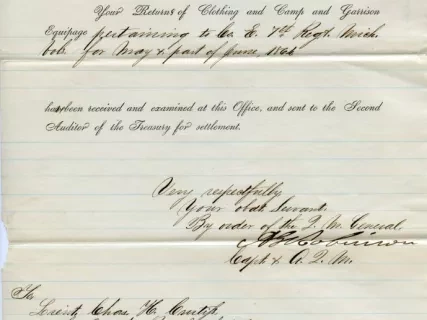 Your Returns of Clothing and Camp and Garrison
Equipage pertaining to Co. E. 7th Regt. Mich.
vols. for May & part of June, 1864
has been received and examined at this Office, and sent to the Second
Auditor of the Treasury for settlement.
Very respectfully
Your obdt Servant,
By order of the Q. M. General,
Robinson
Capt & A. Q. M.
To
Lieut. Chas. H. Curtis,